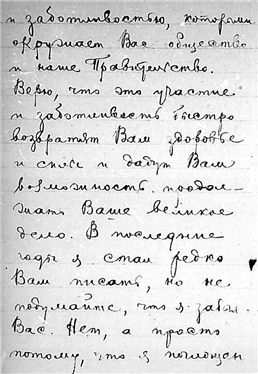 и заботливостью, которыми
окружает Вас общество
и наше Правительство.
Верю, что это участие
и заботливость быстро
возвратят Вам здоровье
и силы и дадут Вам
возможность продол-
жать Ваше великое
дело. В последние
годы я стал редко
Вам писать, но не
подумайте, что я забыл
Вас. Нет, а просто
потому, что я поглощен